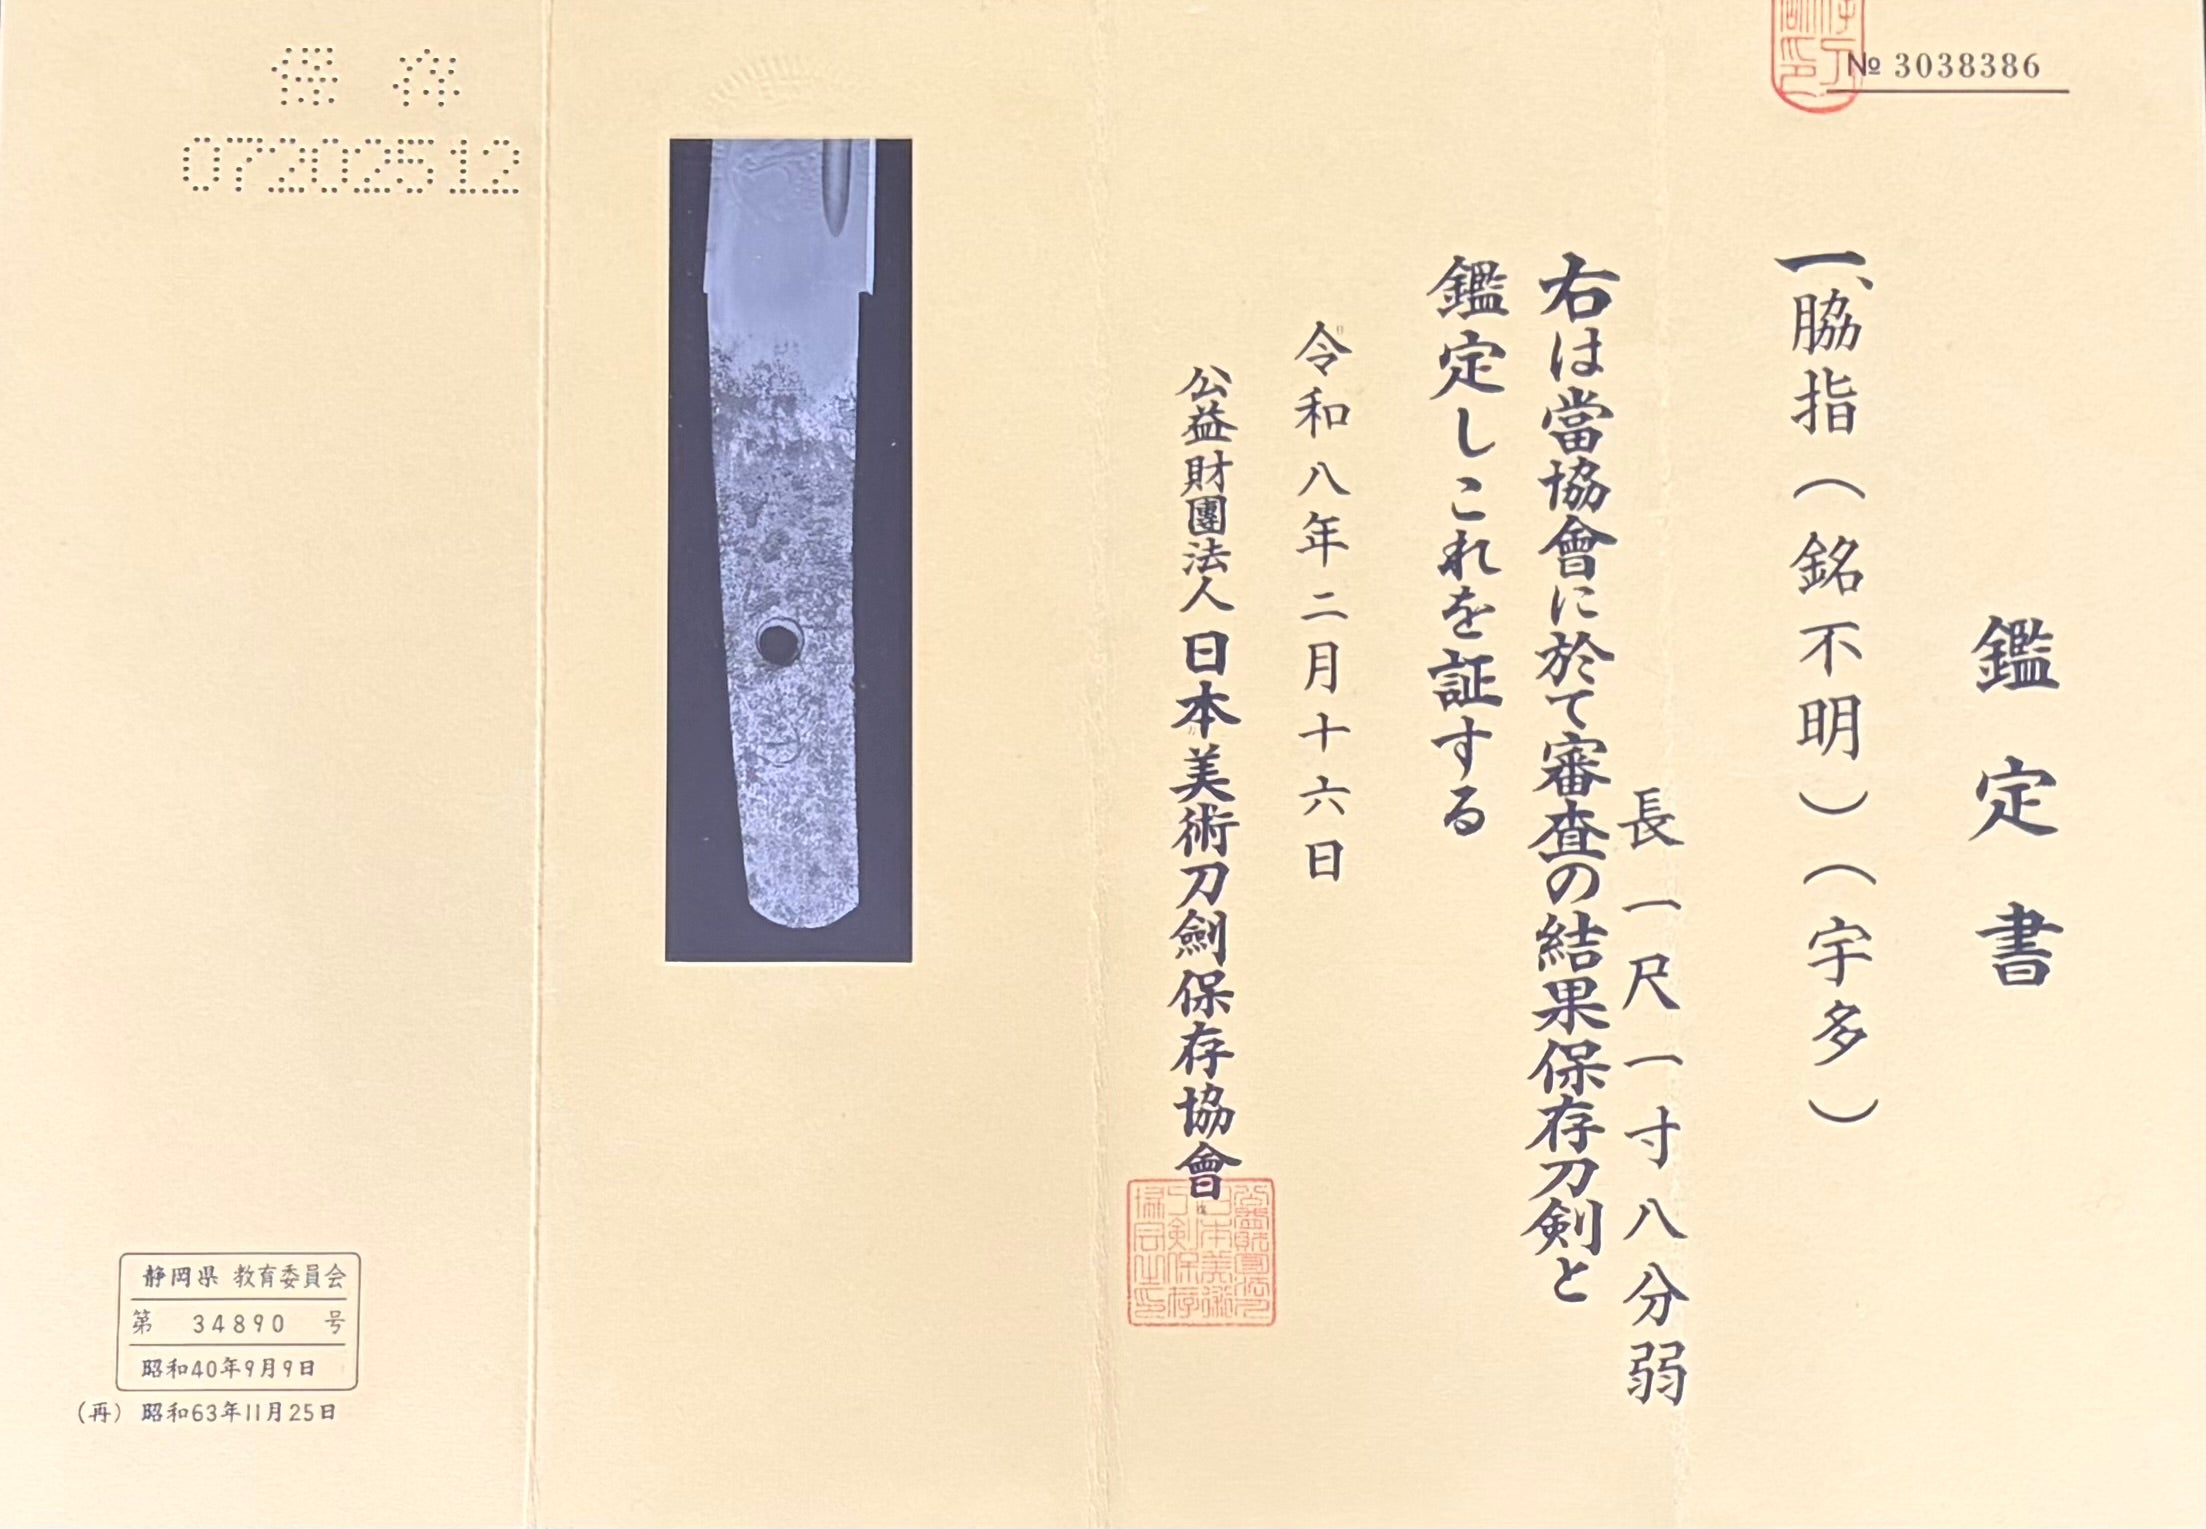 № 3038386
鑑定書
一、脇指（銘不明）（宇多）
長一尺一寸八分弱
右は當協會に於て審査の結果保存刀剣と
鑑定しこれを証する
令和八年二月十六日
公益財團法人日本美術刀劍保存協會
保存
07202512
静岡県 教育委員会
第 34890 号
昭和40年9月9日
(再) 昭和63年11月25日